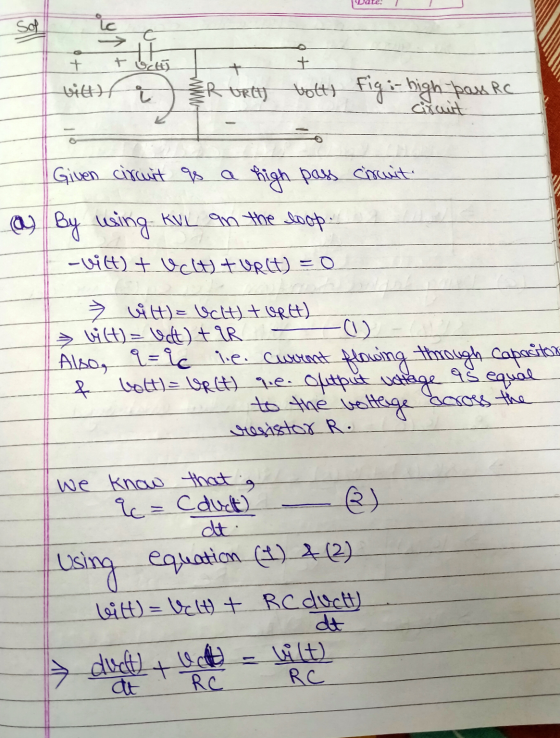 Date:
Sol
ic
C
+ + vc(t) + +
vi(t) i R vR(t) vo(t) Fig:- high-pass RC
circuit
- - -
Given circuit is a high pass circuit.
(a) By using KVL in the loop.
-vi(t) + vc(t) + vR(t) = 0
⇒ vi(t) = vc(t) + vR(t)
⇒ vi(t) = vc(t) + iR —— (1)
Also, i = ic i.e. current flowing through capacitor
& vo(t) = vR(t) i.e. output voltage is equal
to the voltage across the
resistor R.
We know that,
ic = C dvc(t)/dt —— (2)
Using equation (1) & (2)
vi(t) = vc(t) + RC dvc(t)/dt
⇒ dvc(t)/dt + vc(t)/RC = vi(t)/RC